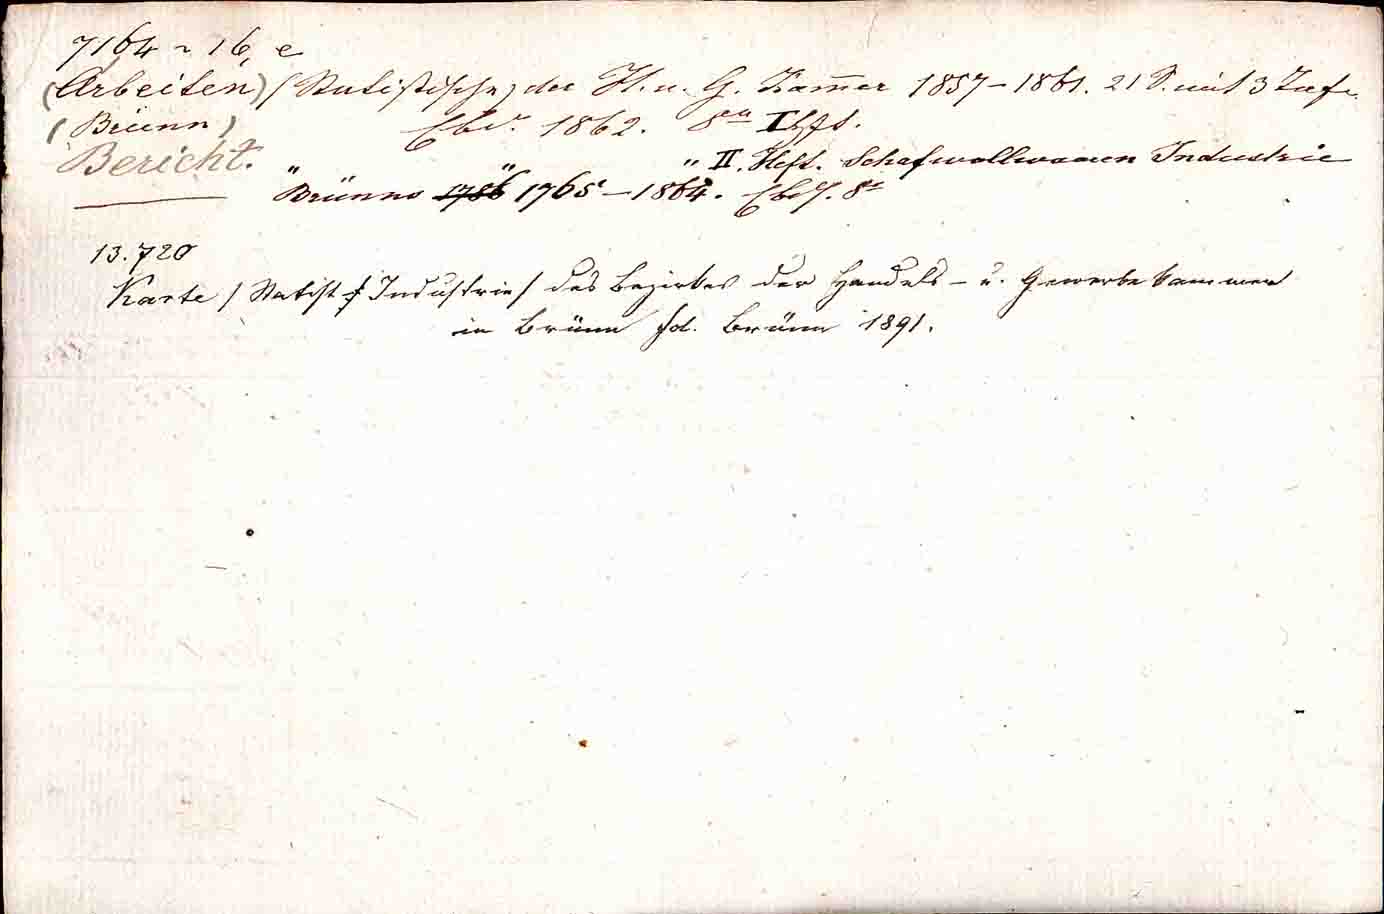 7164 ~ 16, e
(Arbeiten) (Statistische) der H. u. G. Kam̅er 1857–1861. 21 S. mit 3 Tafn.
(Brünn) Ebd. 1862. 8° I Hft.
Bericht. " " " II. Heft. Schafwollwaaren Industrie
Brünns 1786 1765–1864. Ebd. 8°
13.720
Karte / Statist. Industrie / des Bezirkes der Handels- u. Gewerbekammer
in Brünn fol. Brünn 1891.